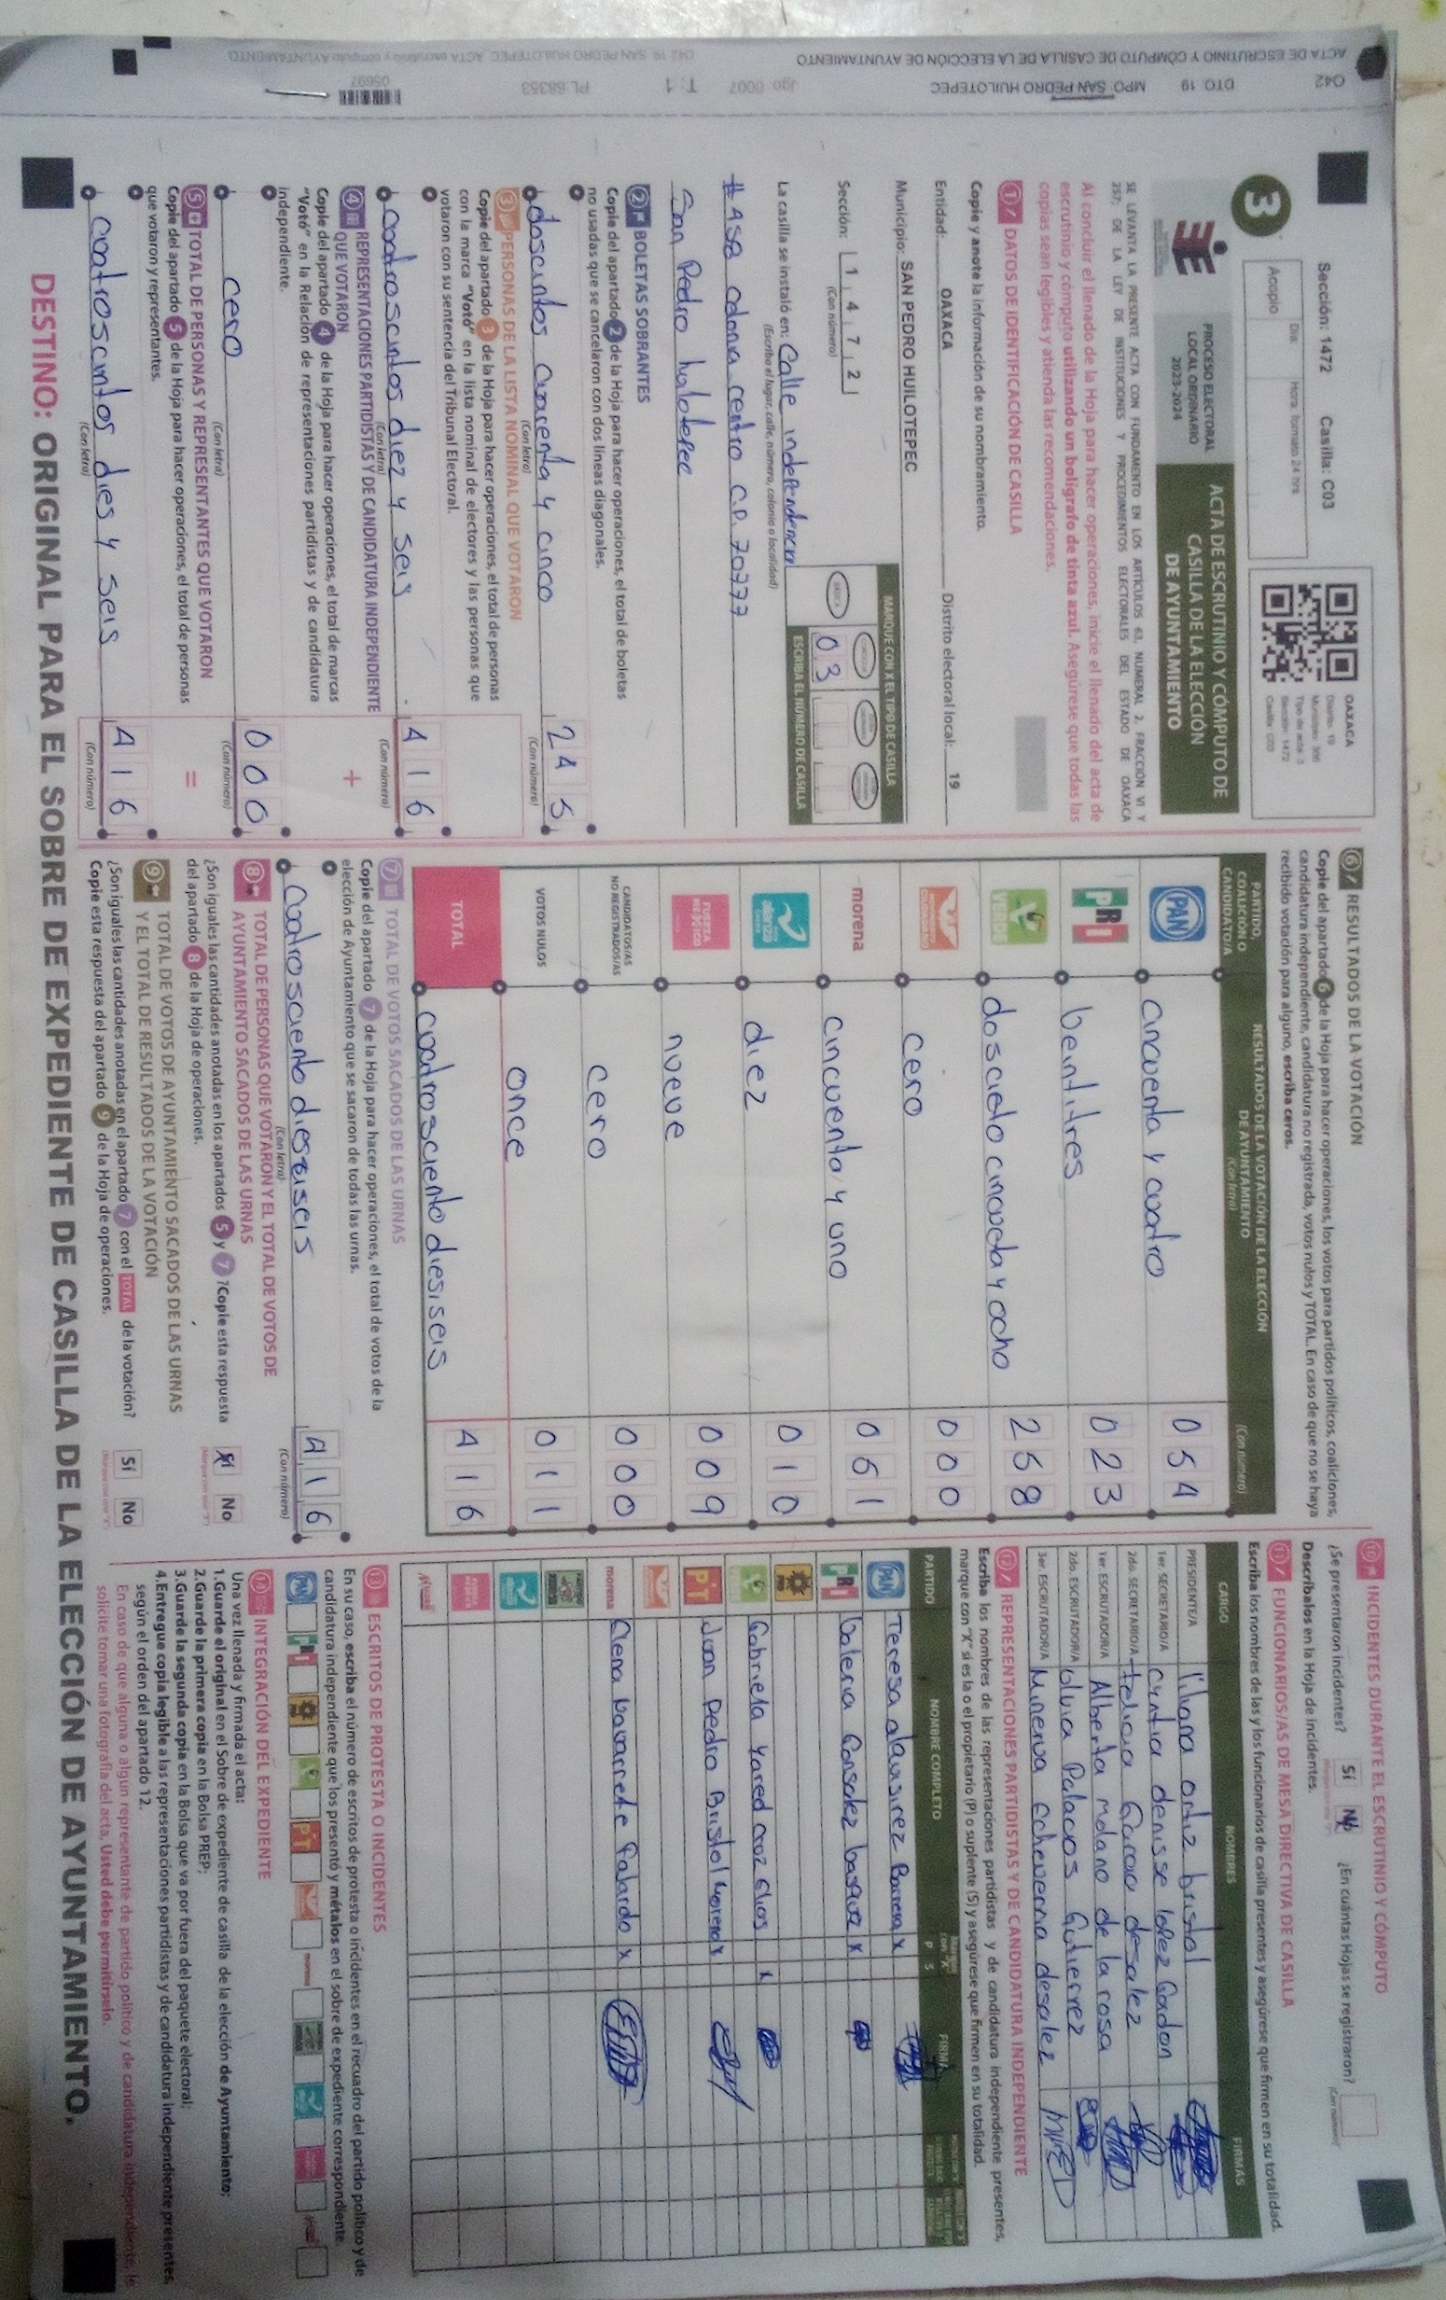 Sección: 1472 Casilla: C03
Día: Hora: formato 24 hrs
Acopio
OAXACA
Distrito: 19
3
PROCESO ELECTORAL
LOCAL ORDINARIO
2023-2024
ACTA DE ESCRUTINIO Y CÓMPUTO DE
CASILLA DE LA ELECCIÓN
DE AYUNTAMIENTO
SE LEVANTA LA PRESENTE ACTA CON FUNDAMENTO EN LOS ARTÍCULOS 63, NUMERAL 2, FRACCIÓN VI Y
257; DE LA LEY DE INSTITUCIONES Y PROCEDIMIENTOS ELECTORALES DEL ESTADO DE OAXACA
Al concluir el llenado de la Hoja para hacer operaciones, inicie el llenado del acta de
escrutinio y cómputo utilizando un bolígrafo de tinta azul. Asegúrese que todas las
copias sean legibles y atienda las recomendaciones.
1 DATOS DE IDENTIFICACIÓN DE CASILLA
Copie y anote la información de su nombramiento.
Entidad: OAXACA Distrito electoral local: 19
Municipio: SAN PEDRO HUILOTEPEC
Sección: 1 4 7 2
(Con número)
MARQUE CON X EL TIPO DE CASILLA
0 3
ESCRIBA EL NÚMERO DE CASILLA
La casilla se instaló en: Calle independencia
(Escriba el lugar, calle, número, colonia o localidad)
San Pedro huilotepec
2 BOLETAS SOBRANTES
Copie del apartado 2 de la Hoja para hacer operaciones, el total de boletas
no usadas que se cancelaron con dos líneas diagonales.
doscintos cuarenta y cinco 2 4 5
(Con letra) (Con número)
3 PERSONAS DE LA LISTA NOMINAL QUE VOTARON
Copie del apartado 3 de la Hoja para hacer operaciones, el total de personas
con la marca "Votó" en la lista nominal de electores y las personas que
votaron con su sentencia del Tribunal Electoral.
coatroscintos diez y seis 4 1 6
(Con letra) (Con número)
4 REPRESENTACIONES PARTIDISTAS Y DE CANDIDATURA INDEPENDIENTE
QUE VOTARON
Copie del apartado 4 de la Hoja para hacer operaciones, el total de marcas
"Votó" en la Relación de representaciones partidistas y de candidatura
independiente.
cero 0 0 0
(Con letra) (Con número)
5 TOTAL DE PERSONAS Y REPRESENTANTES QUE VOTARON
Copie del apartado 5 de la Hoja para hacer operaciones, el total de personas
que votaron y representantes.
contros cintos dies y seis 4 1 6
(Con letra) (Con número)
6 RESULTADOS DE LA VOTACIÓN
Copie del apartado 6 de la Hoja para hacer operaciones, los votos para partidos políticos, coaliciones,
candidatura independiente, candidatura no registrada, votos nulos y TOTAL. En caso de que no se haya
recibido votación para alguno, escriba ceros.
PARTIDO, COALICIÓN O CANDIDATO/A
RESULTADOS DE LA VOTACIÓN DE LA ELECCIÓN DE AYUNTAMIENTO
(Con letra) (Con número)
PAN cincuenta y coatro 0 5 4
PRI beintitres 0 2 3
VERDE doscieto cincucta y ocho 2 5 8
MOVIMIENTO CIUDADANO cero 0 0 0
morena cincuenta y uno 0 5 1
nueva alianza diez 0 1 0
FUERZA MÉXICO nueve 0 0 9
CANDIDATOS/AS NO REGISTRADOS/AS cero 0 0 0
VOTOS NULOS once 0 1 1
TOTAL coatrosciento diesiseis 4 1 6
7 TOTAL DE VOTOS SACADOS DE LAS URNAS
Copie del apartado 7 de la Hoja para hacer operaciones, el total de votos de la
elección de Ayuntamiento que se sacaron de todas las urnas.
(Con letra) 4 1 6 (Con número)
8 TOTAL DE PERSONAS QUE VOTARON Y EL TOTAL DE VOTOS DE
AYUNTAMIENTO SACADOS DE LAS URNAS
¿Son iguales las cantidades anotadas en los apartados 5 y 7? Copie esta respuesta
del apartado 8 de la Hoja de operaciones. Sí No
9 TOTAL DE VOTOS DE AYUNTAMIENTO SACADOS DE LAS URNAS
Y EL TOTAL DE RESULTADOS DE LA VOTACIÓN
¿Son iguales las cantidades anotadas en el apartado 7 con el TOTAL de la votación?
Copie esta respuesta del apartado 9 de la Hoja de operaciones. Sí No
10 INCIDENTES DURANTE EL ESCRUTINIO Y CÓMPUTO
¿Se presentaron incidentes? Sí No ¿En cuántas Hojas se registraron?
Descríbalos en la Hoja de incidentes.
11 FUNCIONARIOS/AS DE MESA DIRECTIVA DE CASILLA
Escriba los nombres de las y los funcionarios de casilla presentes y asegúrese que firmen en su totalidad.
CARGO NOMBRES FIRMAS
PRESIDENTE/A liliana ortiz bristol
1er. SECRETARIO/A cyntia denisse lopez Gadon
2do. SECRETARIO/A felicia Garcia desales
1er. ESCRUTADOR/A Alberta molano de la rosa
2do. ESCRUTADOR/A olivia Palacios Gutierrez
3er. ESCRUTADOR/A Minerva echeverria desales
12 REPRESENTACIONES PARTIDISTAS Y DE CANDIDATURA INDEPENDIENTE
Escriba los nombres de las representaciones partidistas y de candidatura independiente presentes,
marque con "X" si es la o el propietario (P) o suplente (S) y asegúrese que firmen en su totalidad.
PARTIDO NOMBRE COMPLETO P S FIRMA
PAN Teresa x
PRI x
VERDE Gabriela Yared x
PT Juan Pedro Bristol x
morena Elena Navarrete x
13 ESCRITOS DE PROTESTA O INCIDENTES
En su caso, escriba el número de escritos de protesta o incidentes en el recuadro del partido político y de
candidatura independiente que los presentó y métalos en el sobre de expediente correspondiente.
14 INTEGRACIÓN DEL EXPEDIENTE
Una vez llenada y firmada el acta:
1. Guarde el original en el Sobre de expediente de casilla de la elección de Ayuntamiento;
2. Guarde la primera copia en la Bolsa PREP;
3. Guarde la segunda copia en la Bolsa que va por fuera del paquete electoral;
4. Entregue copia legible a las representaciones partidistas y de candidatura independiente presentes,
según el orden del apartado 12.
En caso de que alguna o algún representante de partido político y de candidatura independiente, le
solicite tomar una fotografía del acta, Usted debe permitírselo.
DESTINO: ORIGINAL PARA EL SOBRE DE EXPEDIENTE DE CASILLA DE LA ELECCIÓN DE AYUNTAMIENTO.
042 DTO. 19 MPO. SAN PEDRO HUILOTEPEC
ACTA DE ESCRUTINIO Y CÓMPUTO DE CASILLA DE LA ELECCIÓN DE AYUNTAMIENTO